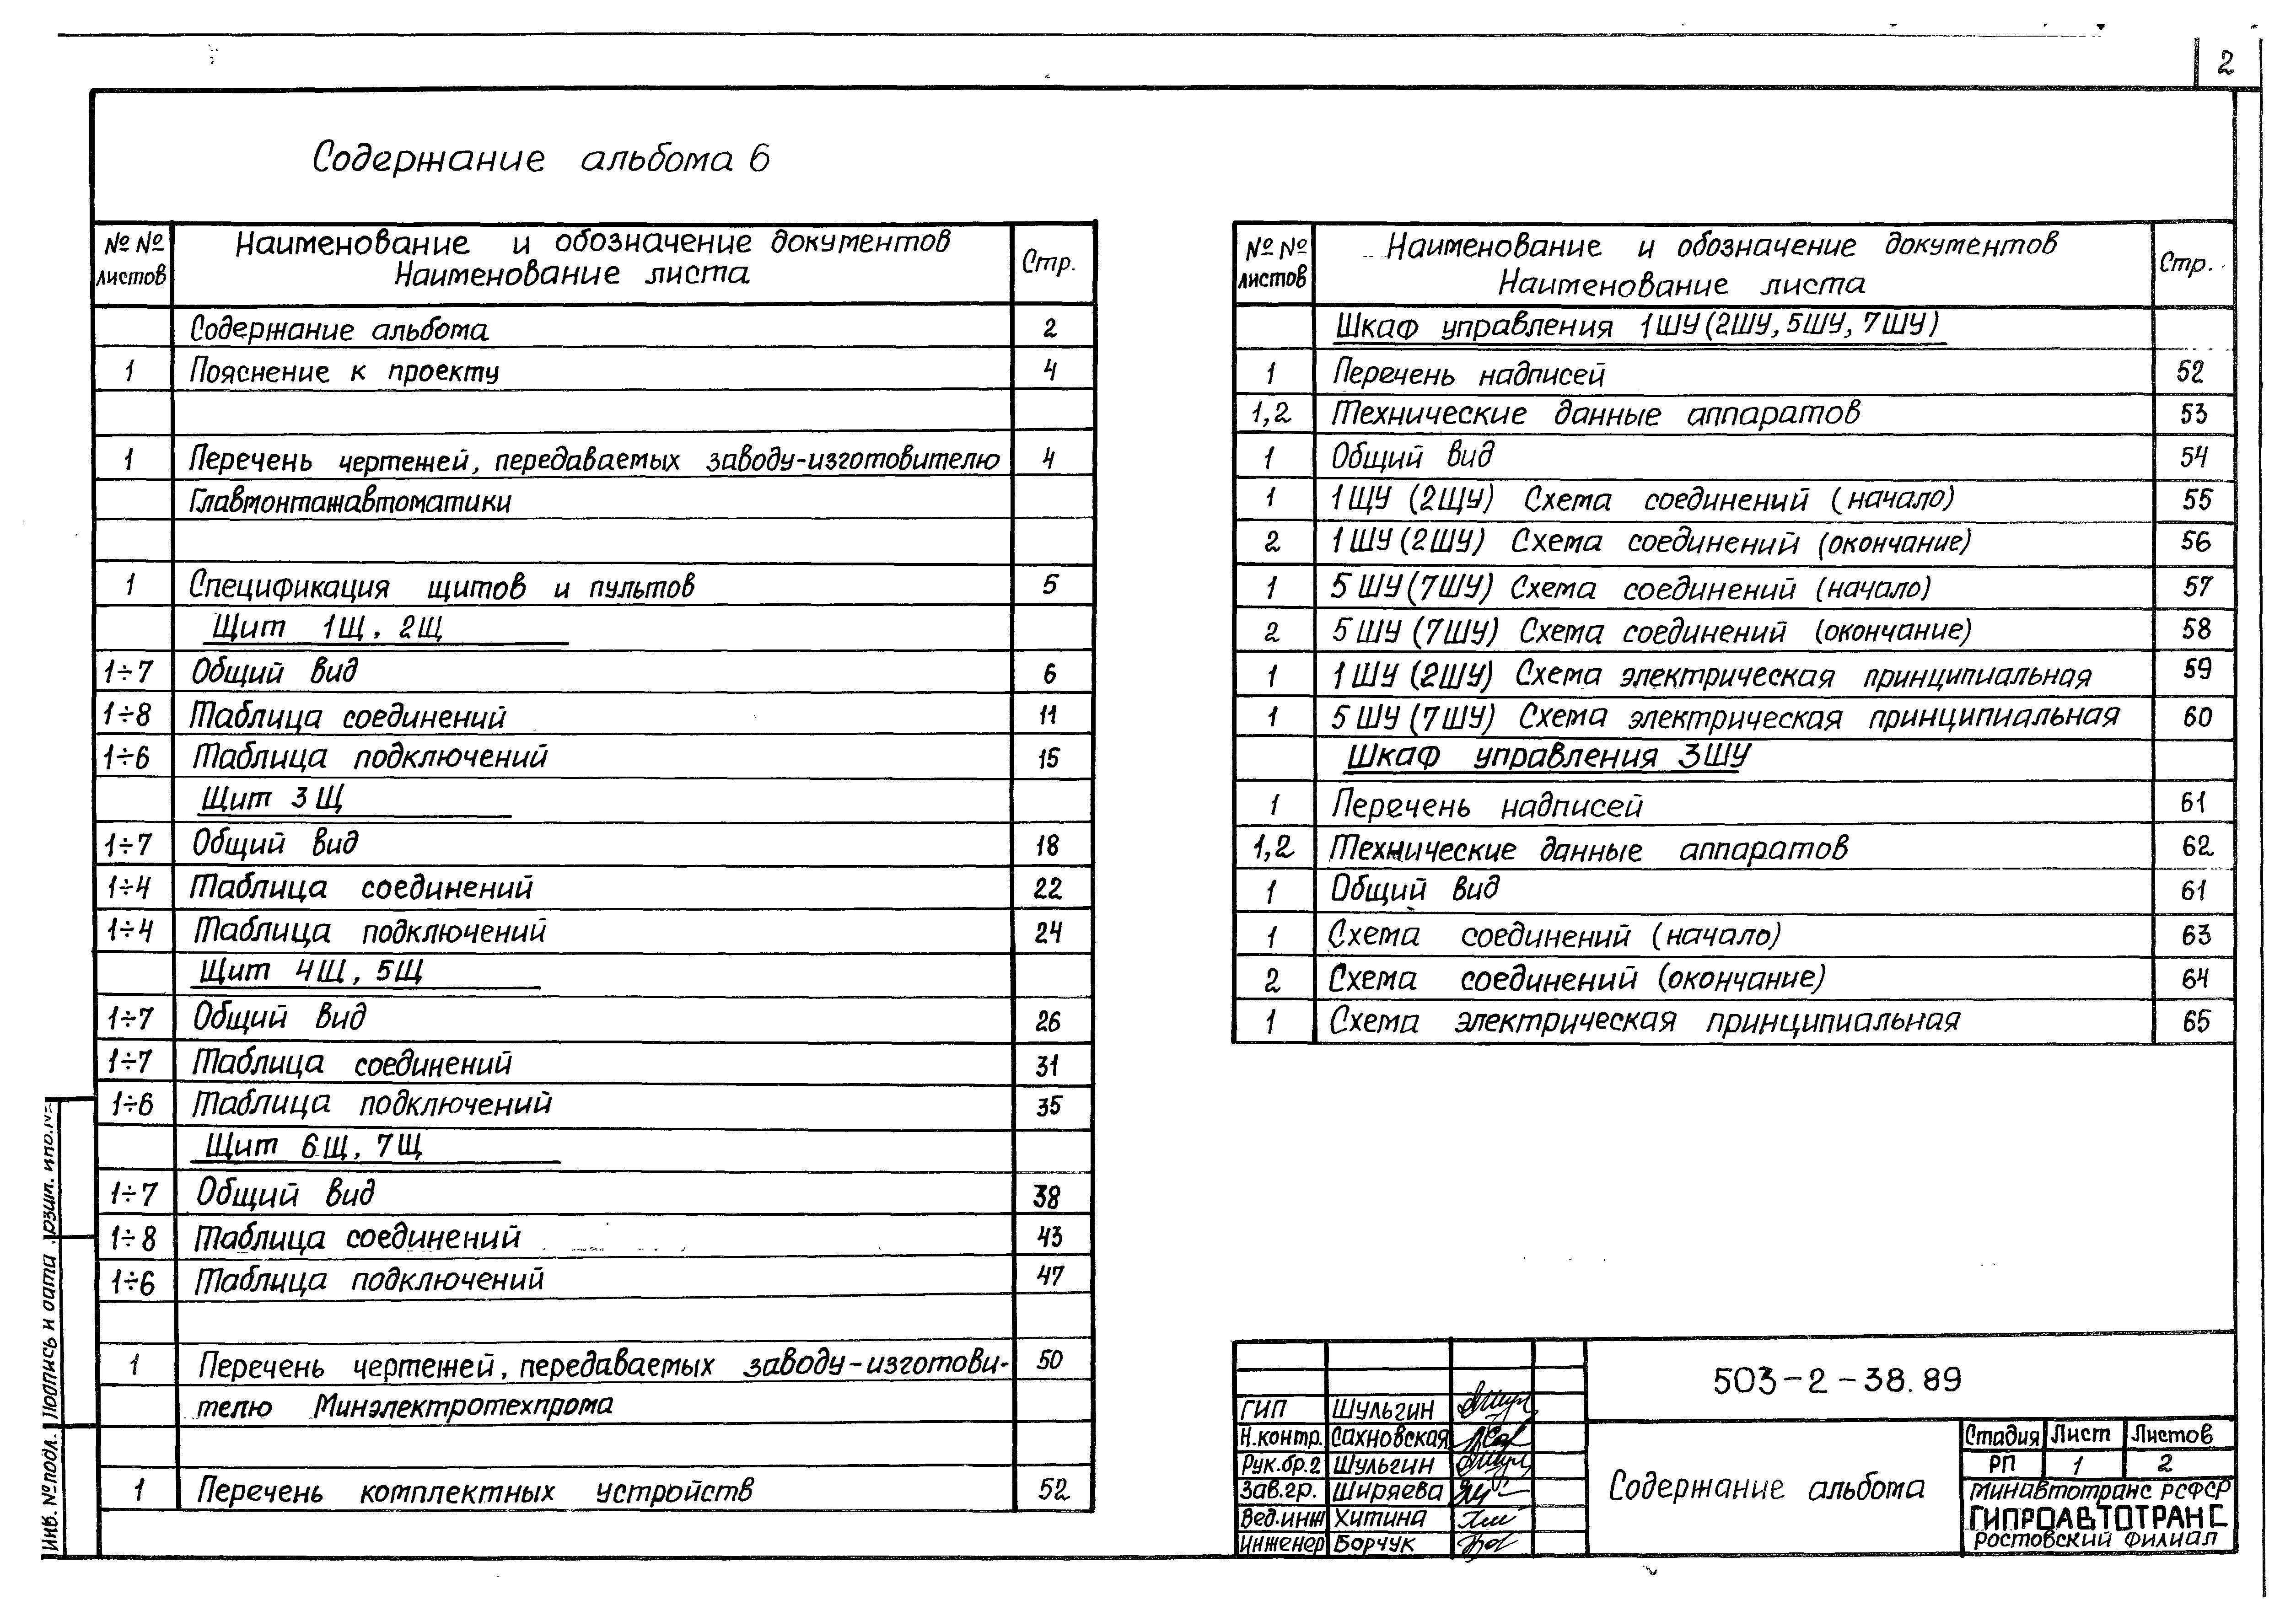 2
Содержание альбома 6
№ № листов Наименование и обозначение документов Наименование листа Стр.
Содержание альбома 2
1 Пояснение к проекту 4
1 Перечень чертежей, передаваемых заводу-изготовителю 4
Главмонтажавтоматики
1 Спецификация щитов и пультов 5
Щит 1Щ, 2Щ
1÷7 Общий вид 6
1÷8 Таблица соединений 11
1÷6 Таблица подключений 15
Щит 3Щ
1÷7 Общий вид 18
1÷4 Таблица соединений 22
1÷4 Таблица подключений 24
Щит 4Щ, 5Щ
1÷7 Общий вид 26
1÷7 Таблица соединений 31
1÷6 Таблица подключений 35
Щит 6Щ, 7Щ
1÷7 Общий вид 38
1÷8 Таблица соединений 43
1÷6 Таблица подключений 47
1 Перечень чертежей, передаваемых заводу-изготови- 50
телю Минэлектротехпрома
1 Перечень комплектных устройств 52
№ № листов Наименование и обозначение документов Наименование листа Стр.
Шкаф управления 1ШУ (2ШУ, 5ШУ, 7ШУ)
1 Перечень надписей 52
1,2 Технические данные аппаратов 53
1 Общий вид 54
1 1ЩУ (2ЩУ) Схема соединений (начало) 55
2 1ШУ (2ШУ) Схема соединений (окончание) 56
1 5ШУ (7ШУ) Схема соединений (начало) 57
2 5ШУ (7ШУ) Схема соединений (окончание) 58
1 1ШУ (2ШУ) Схема электрическая принципиальная 59
1 5ШУ (7ШУ) Схема электрическая принципиальная 60
Шкаф управления 3ШУ
1 Перечень надписей 61
1,2 Технические данные аппаратов 62
1 Общий вид 61
1 Схема соединений (начало) 63
2 Схема соединений (окончание) 64
1 Схема электрическая принципиальная 65
503-2-38.89
ГИП Шульгин
Н.контр. Сахновская
Рук.бр.2 Шульгин
Зав.гр. Ширяева
Вед.инж Хитина
Инженер Борчук
Содержание альбома
Стадия Лист Листов
РП 1 2
Минавтотранс РСФСР
ГИПРОАВТОТРАНС
Ростовский филиал
Инв. № подл. Подпись и дата